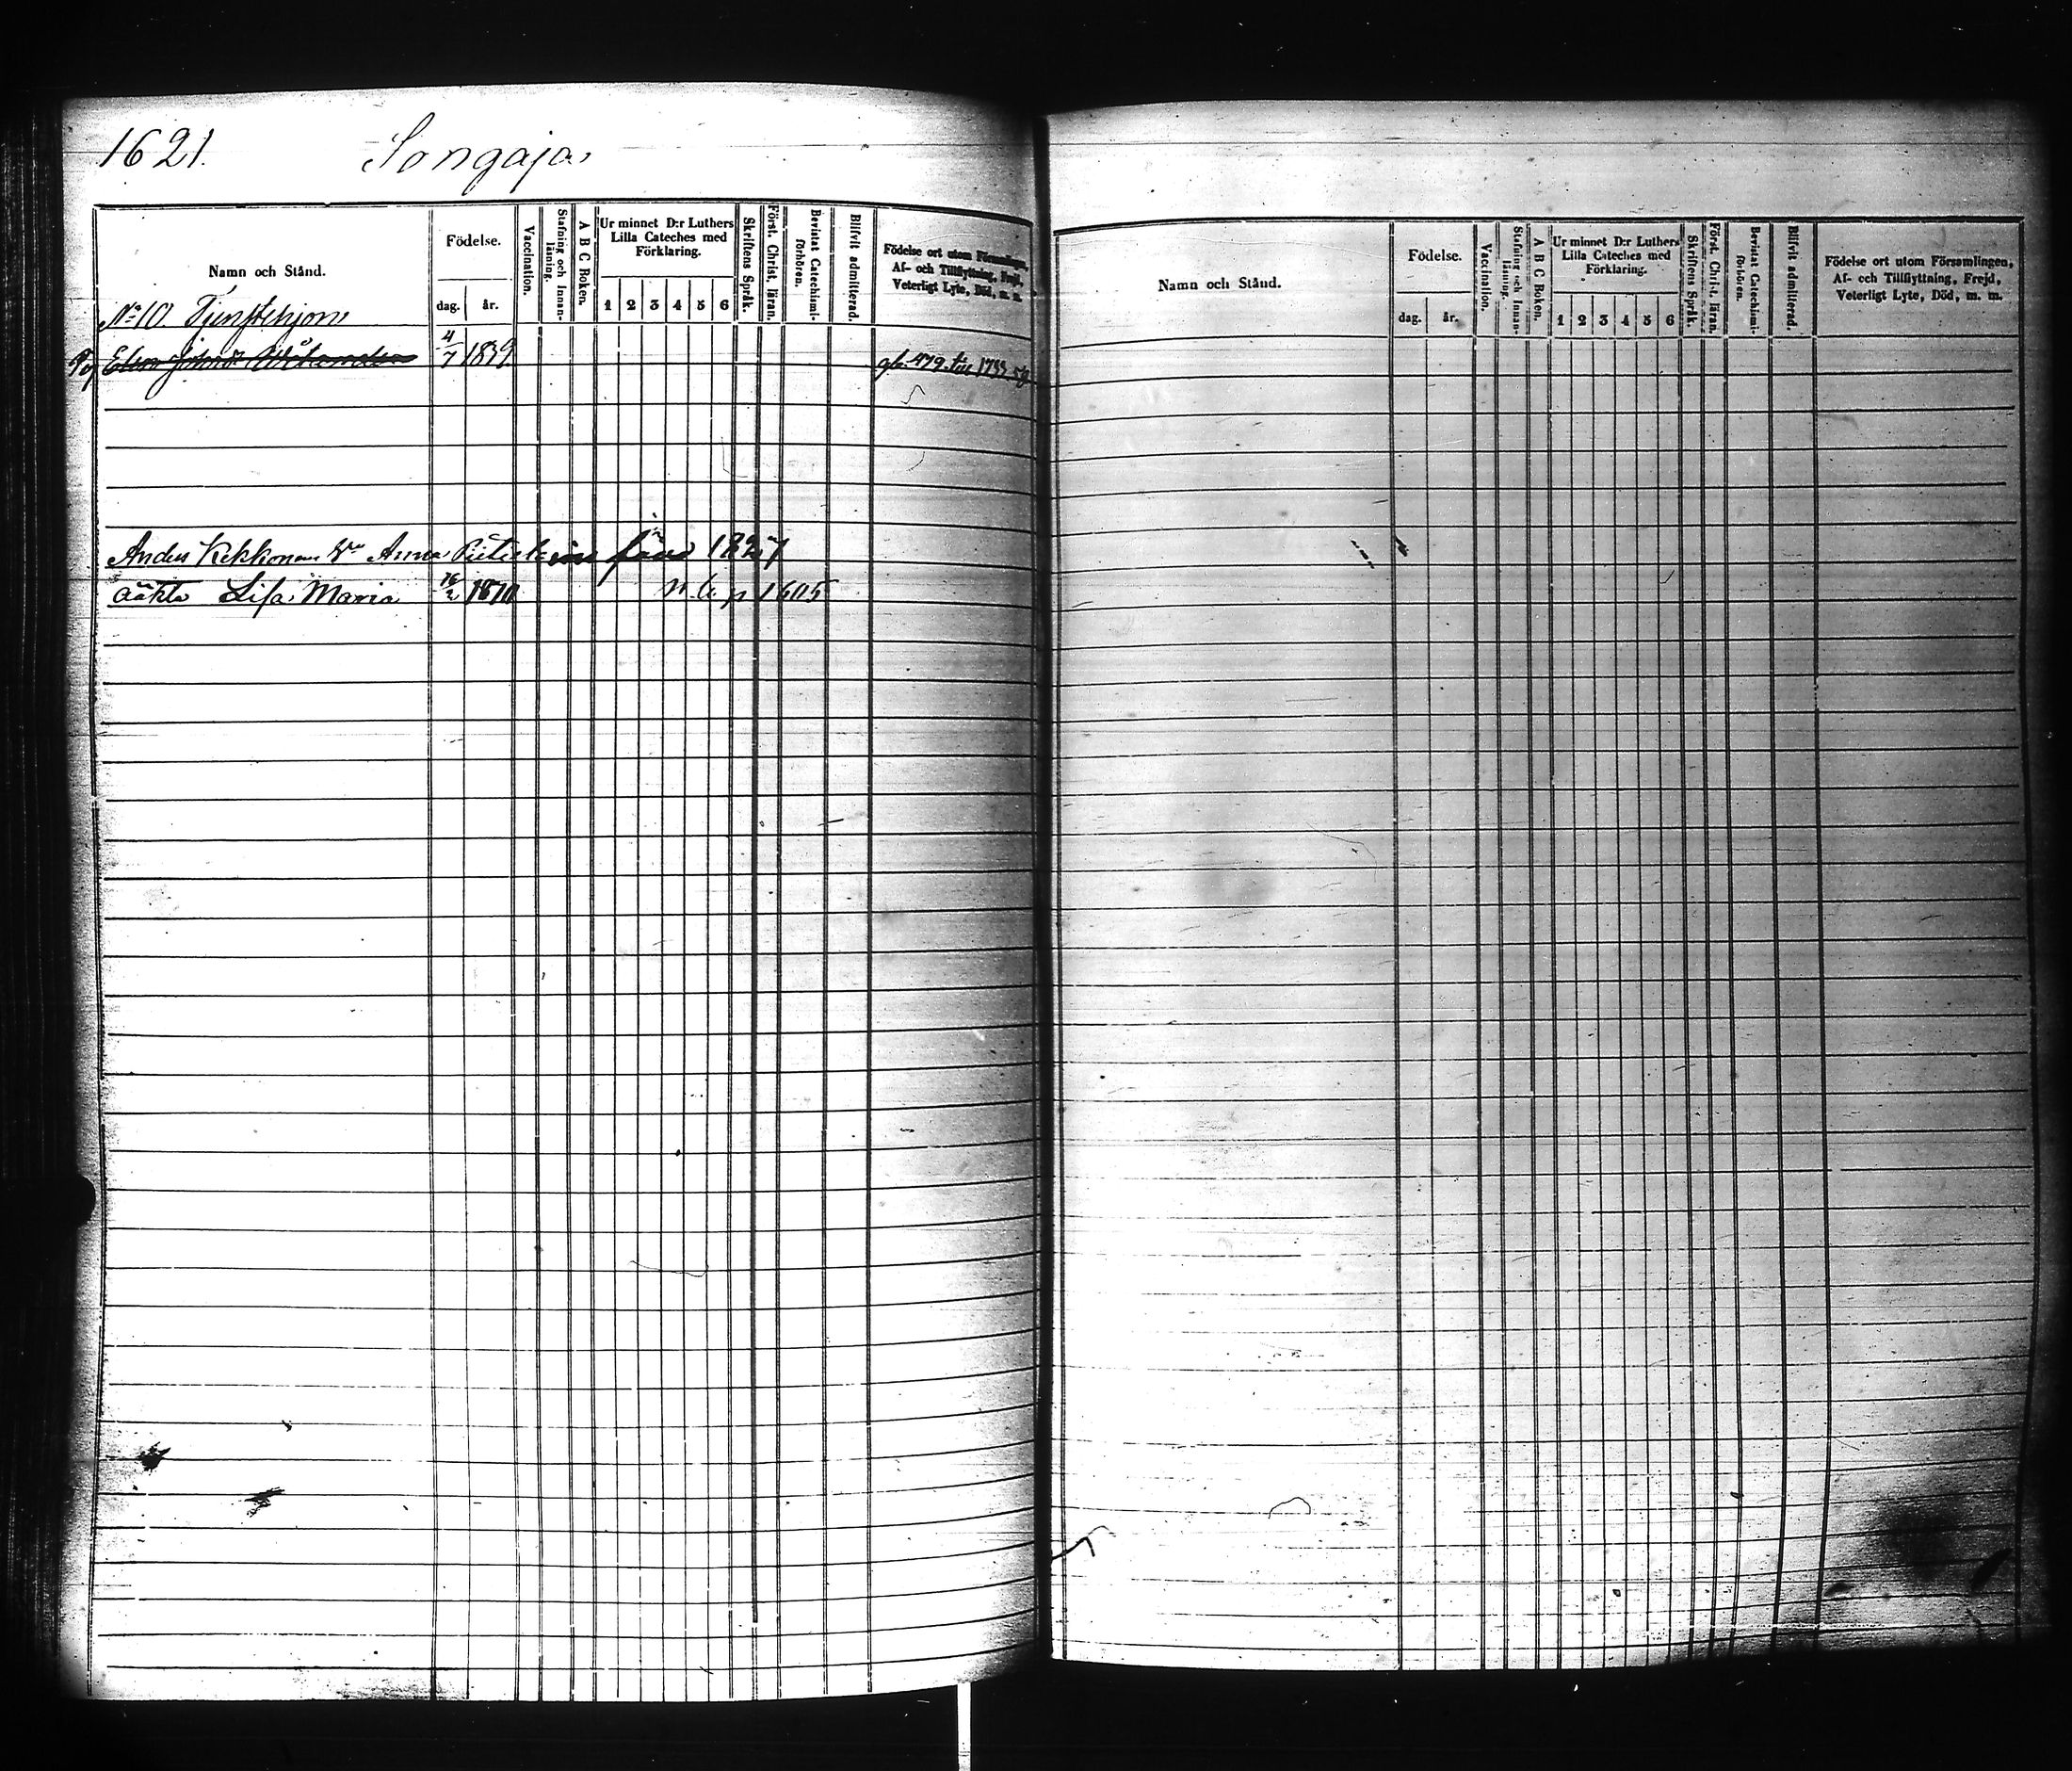 1621. Songaja
Namn och Stånd.
Födelse.
dag. år.
Vaccination.
Stafning och Innan-läsning.
A B C Boken.
Ur minnet D:r Luthers
Lilla Cateches med
Förklaring.
1 2 3 4 5 6
Skriftens Språk.
Först. Christ. läran.
Bevistat Catechismi-förhören.
Blifvit admitterad.
Födelse ort utom Församlingen,
Af- och Tillflyttning, Frejd,
Veterligt Lyte, Död, m. m.
No 10. Tjenstehjon
4/7 1839. gb. 479. 1733
Anders Kekkonen Anna 1827
Lisa Maria 16/2 1870 p 1605
Namn och Stånd.
Födelse.
dag. år.
Vaccination.
Stafning och Innan-läsning.
A B C Boken.
Ur minnet D:r Luthers
Lilla Cateches med
Förklaring.
1 2 3 4 5 6
Skriftens Språk.
Först. Christ. läran.
Bevistat Catechismi-förhören.
Blifvit admitterad.
Födelse ort utom Församlingen,
Af- och Tillflyttning, Frejd,
Veterligt Lyte, Död, m. m.